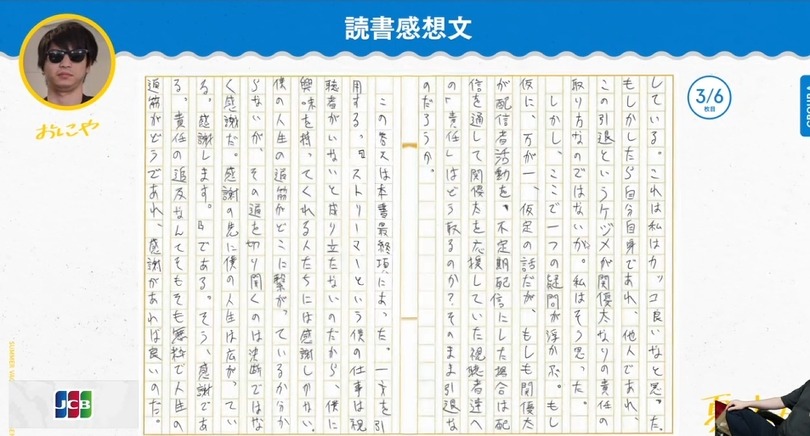 読書感想文
おにや
3/6
枚目
している。これは私はカッコ良いなと思った。
もしかしたら自分自身であれ、他人であれ、
この引退というケヅメが関優太なりの責任の
取り方なのではないか。私はそう思った。
しかし、ここで一つの疑問が浮かぶ。もし
仮に、万が一、仮定の話だが、もしも関優太
が配信者活動を、不定期配信にした場合は配
信を通して関優太を応援していた視聴者達へ
の「責任」はどう取るのか?そのまま引退な
のだろうか。
この答えは本書最終項にあった。一文を引
用する。『ストリーマーという僕の仕事は視
聴者がいないと成り立たないのだから、僕に
興味を持ってくれる人たちには感謝しかない。
僕の人生の道筋がどこに繋がっているか分か
らないが、その道を切り開くのは決断ではな
く感謝だ。感謝の先に僕の人生は広がってい
る。感謝します。』である。そう、感謝であ
る。責任の追及なんてそもそも無粋で人生の
道筋がどうであれ、感謝があれば良いのだ。
JCB